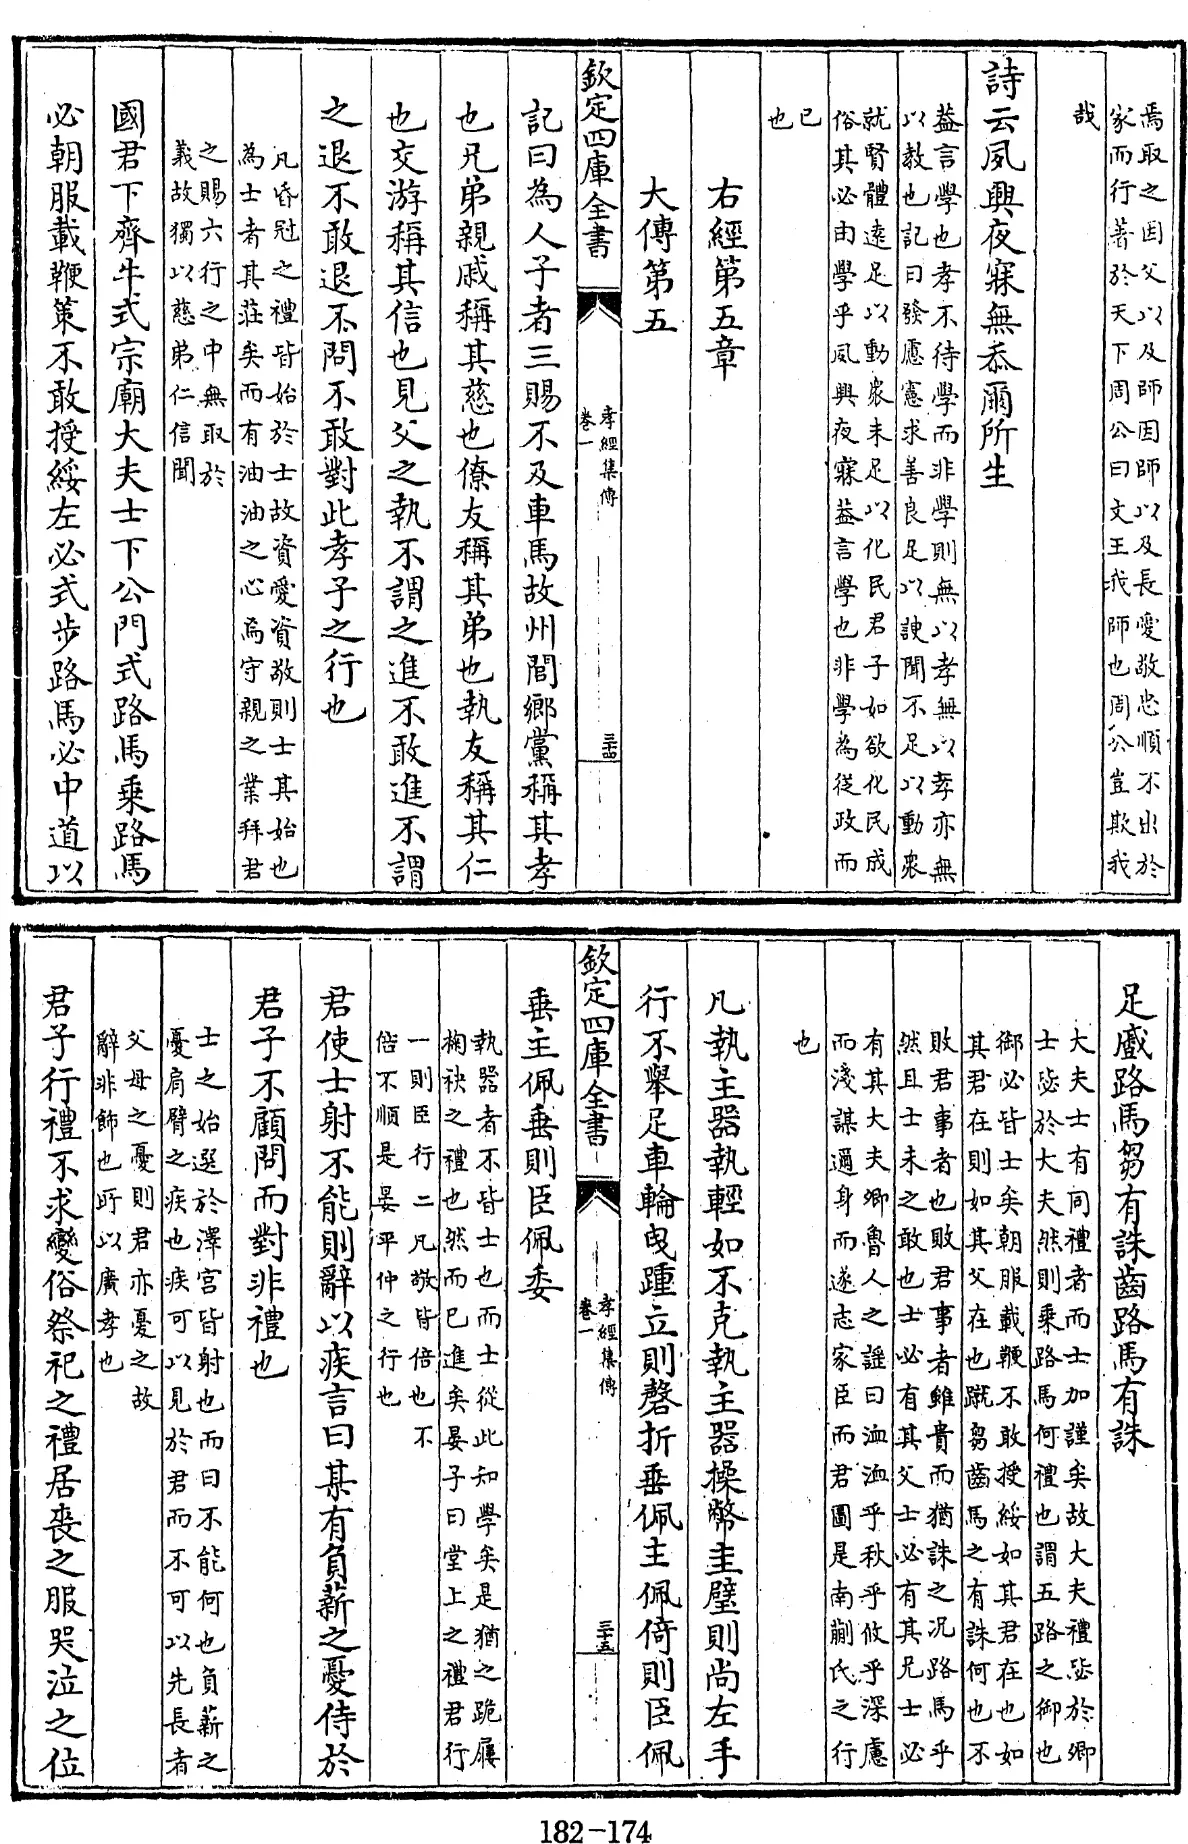 焉取之因父以及師因師以及長愛敬忠順不出於
家而行著於天下周公曰文王我師也周公豈欺我
哉
詩云夙興夜寐無忝爾所生
葢言學也孝不待學而非學則無以孝無以孝亦無
以教也記曰發慮憲求善良足以謏聞不足以動衆
就賢體遠足以動衆未足以化民君子如欲化民成
俗其必由學乎夙興夜寐葢言學也非學為從政而
已
也
右經第五章
大傳第五
欽定四庫全書
孝經集傳
卷一
三十四
記曰為人子者三賜不及車馬故州閭鄉黨稱其孝
也兄弟親戚稱其慈也僚友稱其弟也執友稱其仁
也交游稱其信也見父之執不謂之進不敢進不謂
之退不敢退不問不敢對此孝子之行也
凡昏冠之禮皆始於士故資愛資敬則士其始也
為士者其莊矣而有油油之心焉守親之業拜君
之賜六行之中無取於
義故獨以慈弟仁信聞
國君下齊牛式宗廟大夫士下公門式路馬乘路馬
必朝服載鞭策不敢授綏左必式步路馬必中道以
足蹙路馬芻有誅齒路馬有誅
大夫士有同禮者而士加謹矣故大夫禮毖於卿
士毖於大夫然則乘路馬何禮也謂五路之御也
御必皆士矣朝服載鞭不敢授綏如其君在也如
其君在則如其父在也蹴芻齒馬之有誅何也不
敗君事者也敗君事者雖貴而猶誅之况路馬乎
然且士未之敢也士必有其父士必有其兄士必
有其大夫卿魯人之謡曰洫洫乎秋乎攸乎深慮
而淺謀邇身而遂志家臣而君圖是南蒯氏之行
也
凡執主器執輕如不克執主器操幣圭璧則尚左手
行不舉足車輪曳踵立則磬折垂佩主佩倚則臣佩
欽定四庫全書
孝經集傳
卷一
三十五
垂主佩垂則臣佩委
執器者不皆士也而士從此知學矣是猶之跪屨
梮袂之禮也然而已進矣晏子曰堂上之禮君行
一則臣行二凡敬皆倍也不
倍不順是晏平仲之行也
君使士射不能則辭以疾言曰某有負薪之憂侍於
君子不顧問而對非禮也
士之始選於澤宮皆射也而曰不能何也負薪之
憂肩臂之疾也疾可以見於君而不可以先長者
父母之憂則君亦憂之故
辭非飾也所以廣孝也
君子行禮不求變俗祭祀之禮居喪之服哭泣之位
182-174